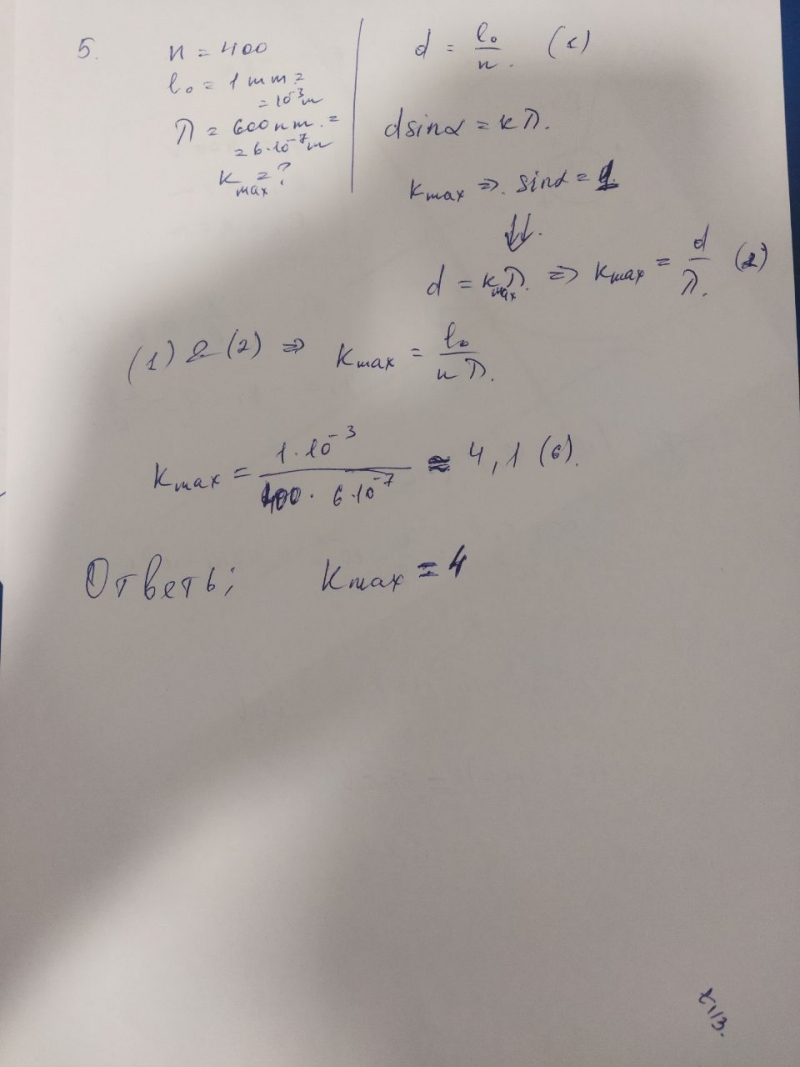 5.
n = 400
l₀ = 1 mm =
= 10⁻³ m
λ = 600 nm. =
= 6·10⁻⁷ m
k max = ?
d = l₀/n. (1)
d sinα = kλ.
k max => sinα = 1.
⇓.
d = k max λ. => k max = d/λ. (2)
(1) & (2) => k max = l₀/nλ.
k max = 1·10⁻³/400 · 6·10⁻⁷ ≈ 4,1(6).
Ответъ; k max = 4